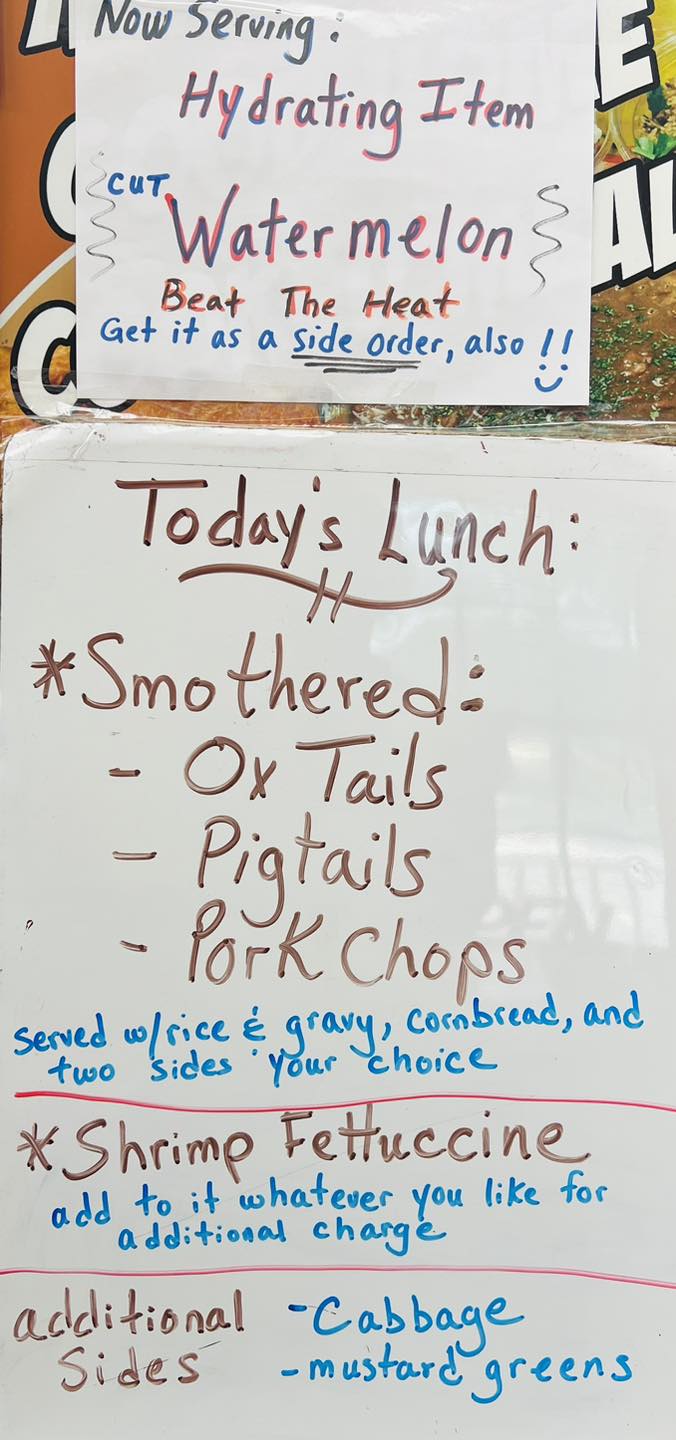 Now Serving:
Hydrating Item
CUT
Watermelon
Beat The Heat
Get it as a side order, also !!
Today's Lunch:
*Smothered:
- Ox Tails
- Pigtails
- Pork Chops
Served w/rice & gravy, cornbread, and
two sides your choice
*Shrimp Fettuccine
add to it whatever you like for
additional charge
additional
Sides
- Cabbage
- mustard greens